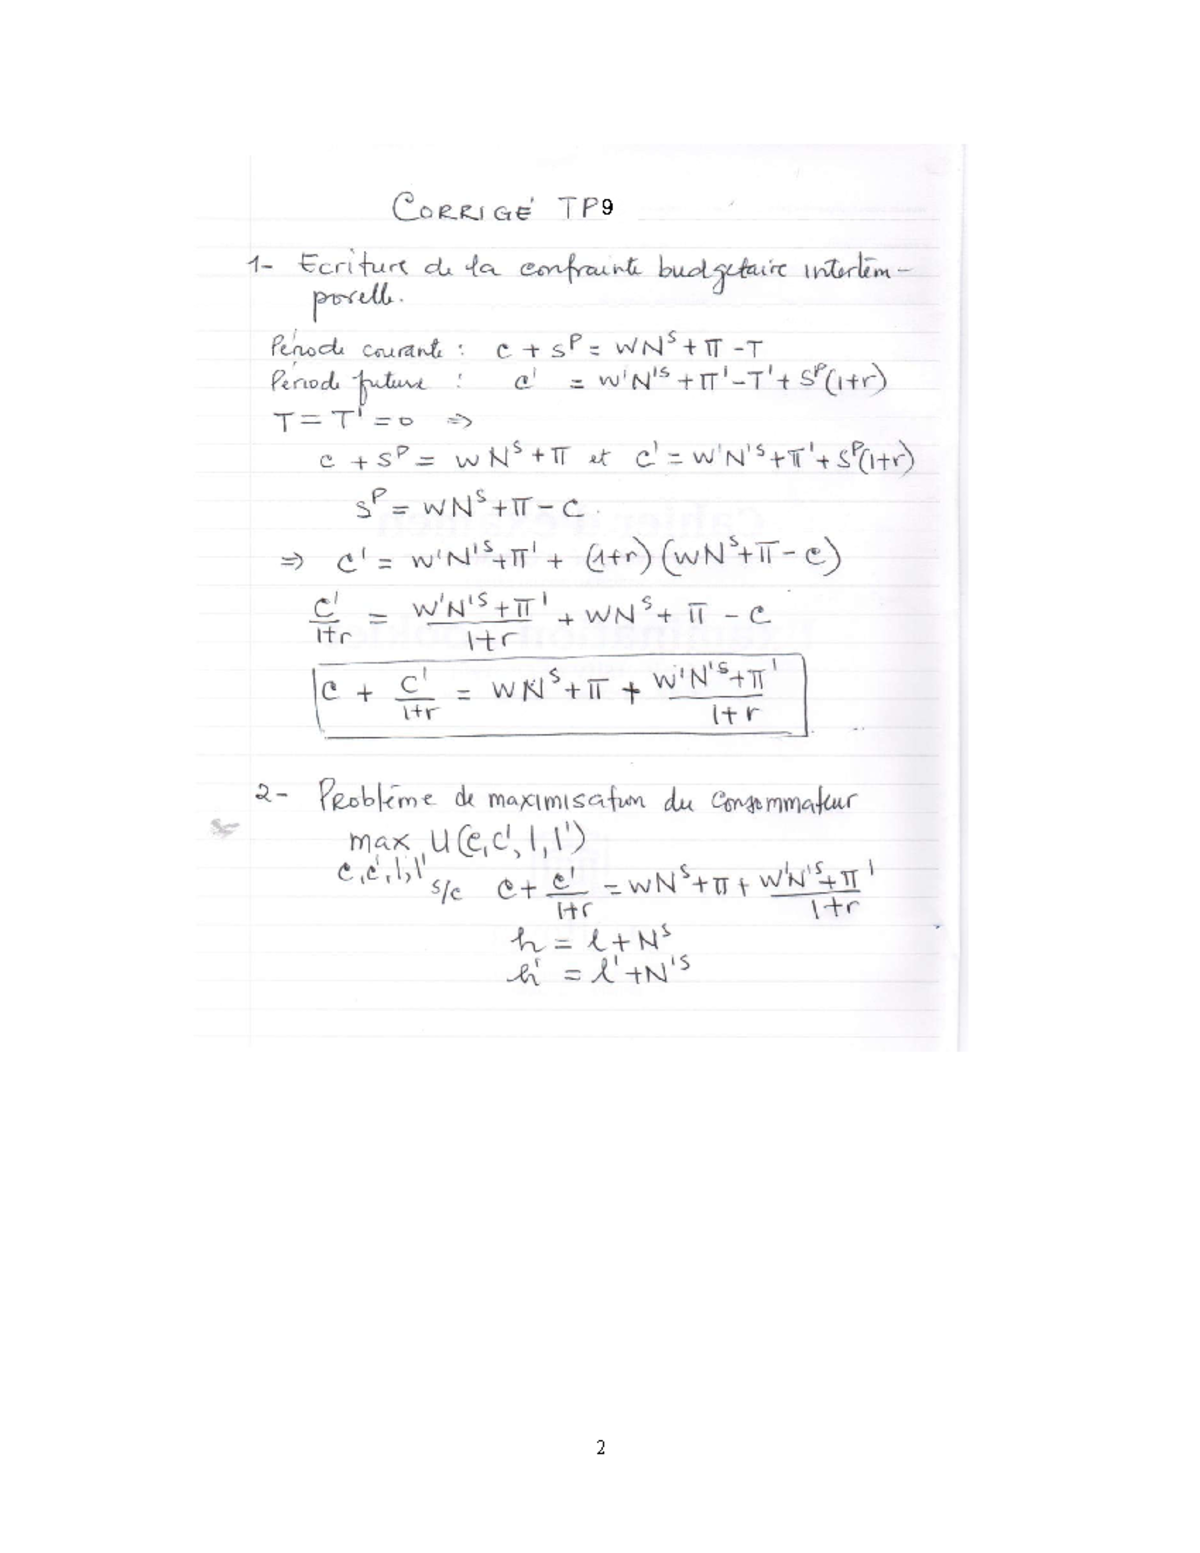 CORRIGÉ TP9
1- Ecriture de la contrainte budgetaire intertem-
porelle.
Période courante : c + s^P = wN^s + π - T
Période future : c' = w'N'^s + π' - T' + s^P(1+r)
T = T' = 0 ⇒
c + s^P = wN^s + π et c' = w'N'^s + π' + s^P(1+r)
s^P = wN^s + π - c.
⇒ c' = w'N'^s + π' + (1+r)(wN^s + π - c)
c'/(1+r) = (w'N'^s + π')/(1+r) + wN^s + π - c
c + c'/(1+r) = wN^s + π + (w'N'^s + π')/(1+r)
2- Problème de maximisation du consommateur
max U(c,c',l,l')
c,c',l,l'
s/c c + c'/(1+r) = wN^s + π + (w'N'^s + π')/(1+r)
h = l + N^s
h' = l' + N'^s
2